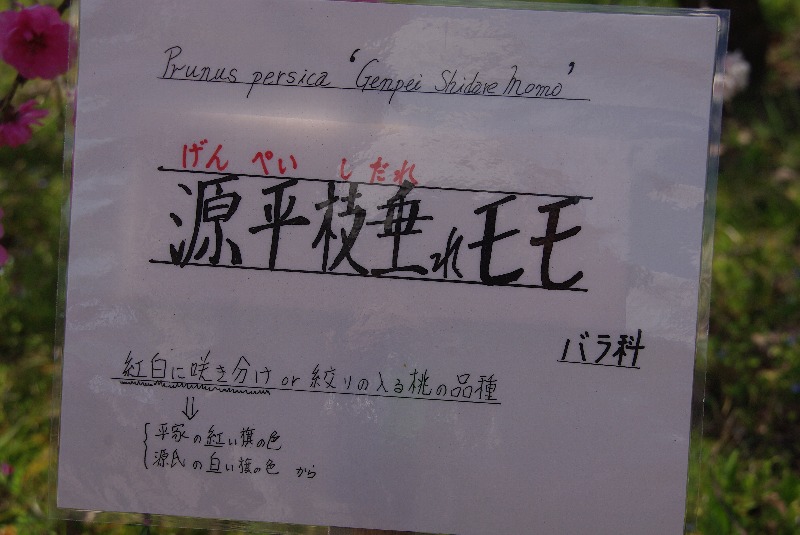 Prunus persica 'Genpei Shidare Momo'
げん ぺい しだれ
源平枝垂れモモ
バラ科
紅白に咲き分け or 絞りの入る桃の品種
⇓
平家の紅い旗の色
源氏の白い旗の色 から